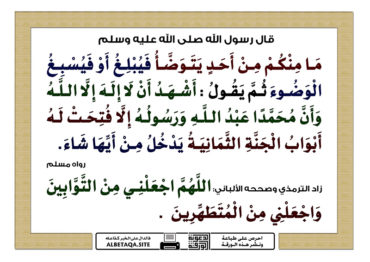 قال رسول الله صلى الله عليه وسلم
مَا مِنْكُمْ مِنْ أَحَدٍ يَتَوَضَّأُ فَيُبْلِغُ أَوْ فَيُسْبِغُ
الْوَضُوءَ ثُمَّ يَقُولُ : أَشْهَدُ أَنْ لَا إِلَهَ إِلَّا اللَّهُ
وَأَنَّ مُحَمَّدًا عَبْدُ اللَّهِ وَرَسُولُهُ إِلَّا فُتِحَتْ لَهُ
أَبْوَابُ الْجَنَّةِ الثَّمَانِيَةُ يَدْخُلُ مِنْ أَيِّهَا شَاءَ.
رواه مسلم
زاد الترمذي وصححه الألباني: اللَّهُمَّ اجْعَلْنِي مِنَ التَّوَّابِينَ
وَاجْعَلْنِي مِنْ الْمُتَطَهِّرِينَ .
احرص على طباعة
ونشر هذه الورقة
فالدال على الخير كفاعله
ALBETAQA.SITE